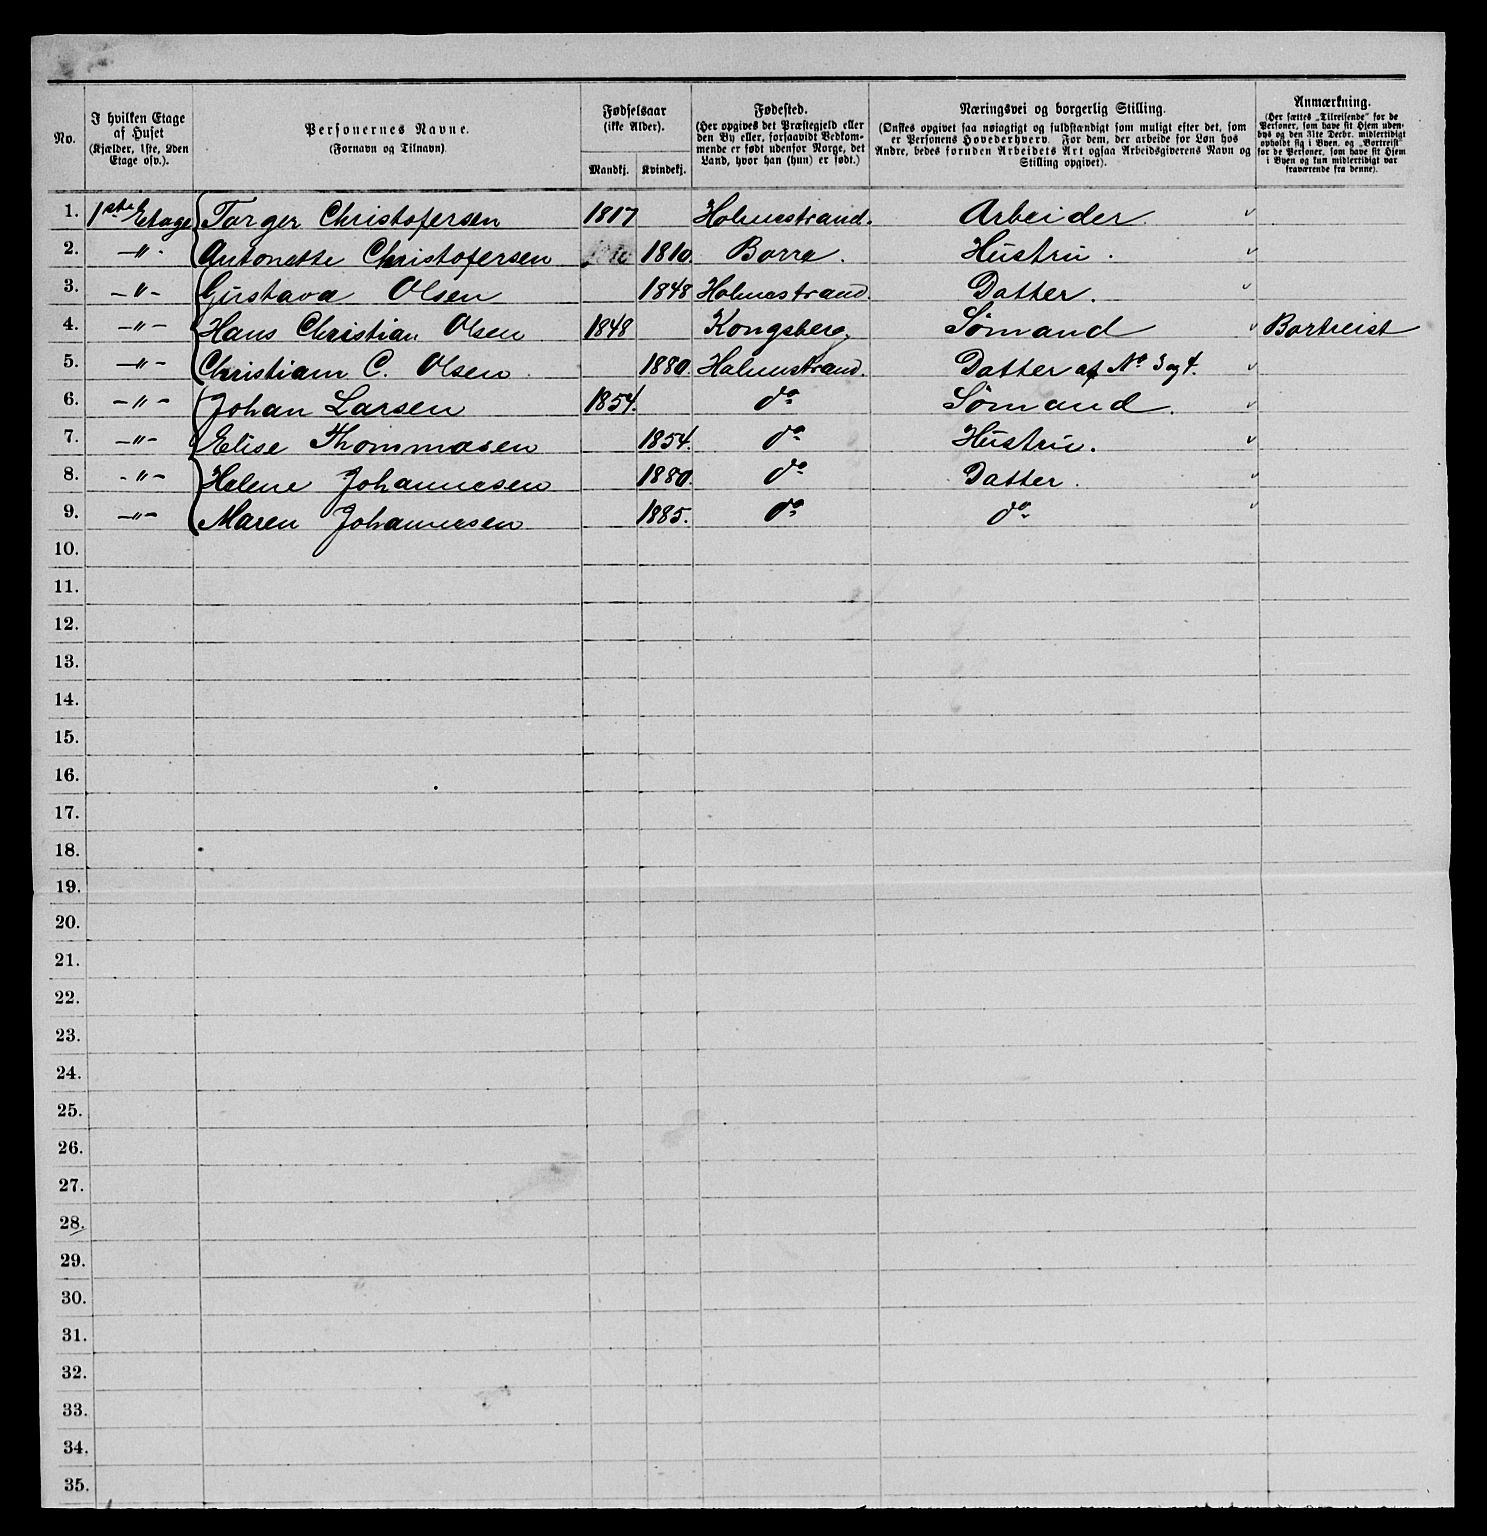 No.
I hvilken Etage af Huset (Kjælder, 1ste, 2den Etage osv.).
Personernes Navne. (Fornavn og Tilnavn)
Fødselsaar (ikke Alder).
Mandkj. Kvindekj.
Fødested. (Her opgives det Præstegjeld eller den By eller, forsaavidt Vedkommende er født udenfor Norge, det Land, hvor han (hun) er født.)
Næringsvei og borgerlig Stilling. (Ønskes opgivet saa nøiagtigt og fuldstændigt som muligt efter det, som er Personens Hovederhverv. For dem, der arbeide for Løn hos Andre, bedes foruden Arbeidets Art ogsaa Arbeidsgiverens Navn og Stilling opgivet).
Anmærkning. (Her sættes „Tilreisende" for de Personer, som have sit Hjem udenbys og den 31te Decbr. midlertidigt opholdt sig i Byen, og „Bortreist" for de Personer, som have sit Hjem i Byen og kun midlertidigt var fraværende fra denne).
1. 1ste Etage Torger Christofersen 1817 Holmestrand. Arbeider
2. —"- Antonette Christofersen 1810 Borre. Hustru.
3. —"— Gustava Olsen 1848 Holmestrand. Datter.
4. —"— Hans Christian Olsen 1848 Kongsberg Sømand Bortreist
5. —"— Christiam C. Olsen. 1880. Holmestrand. Datter af No 3 og 4.
6. —"— Johan Larsen 1854. do Sømand.
7. —"— Elise Thommasen 1854. do Hustru.
8. -"— Helene Johannesen 1880. do Datter.
9. —"— Maren Johannesen 1885. do do
10.
11.
12.
13.
14.
15.
16.
17.
18.
19.
20.
21.
22.
23.
24.
25.
26.
27.
28.
29.
30.
31.
32.
33.
34.
35.